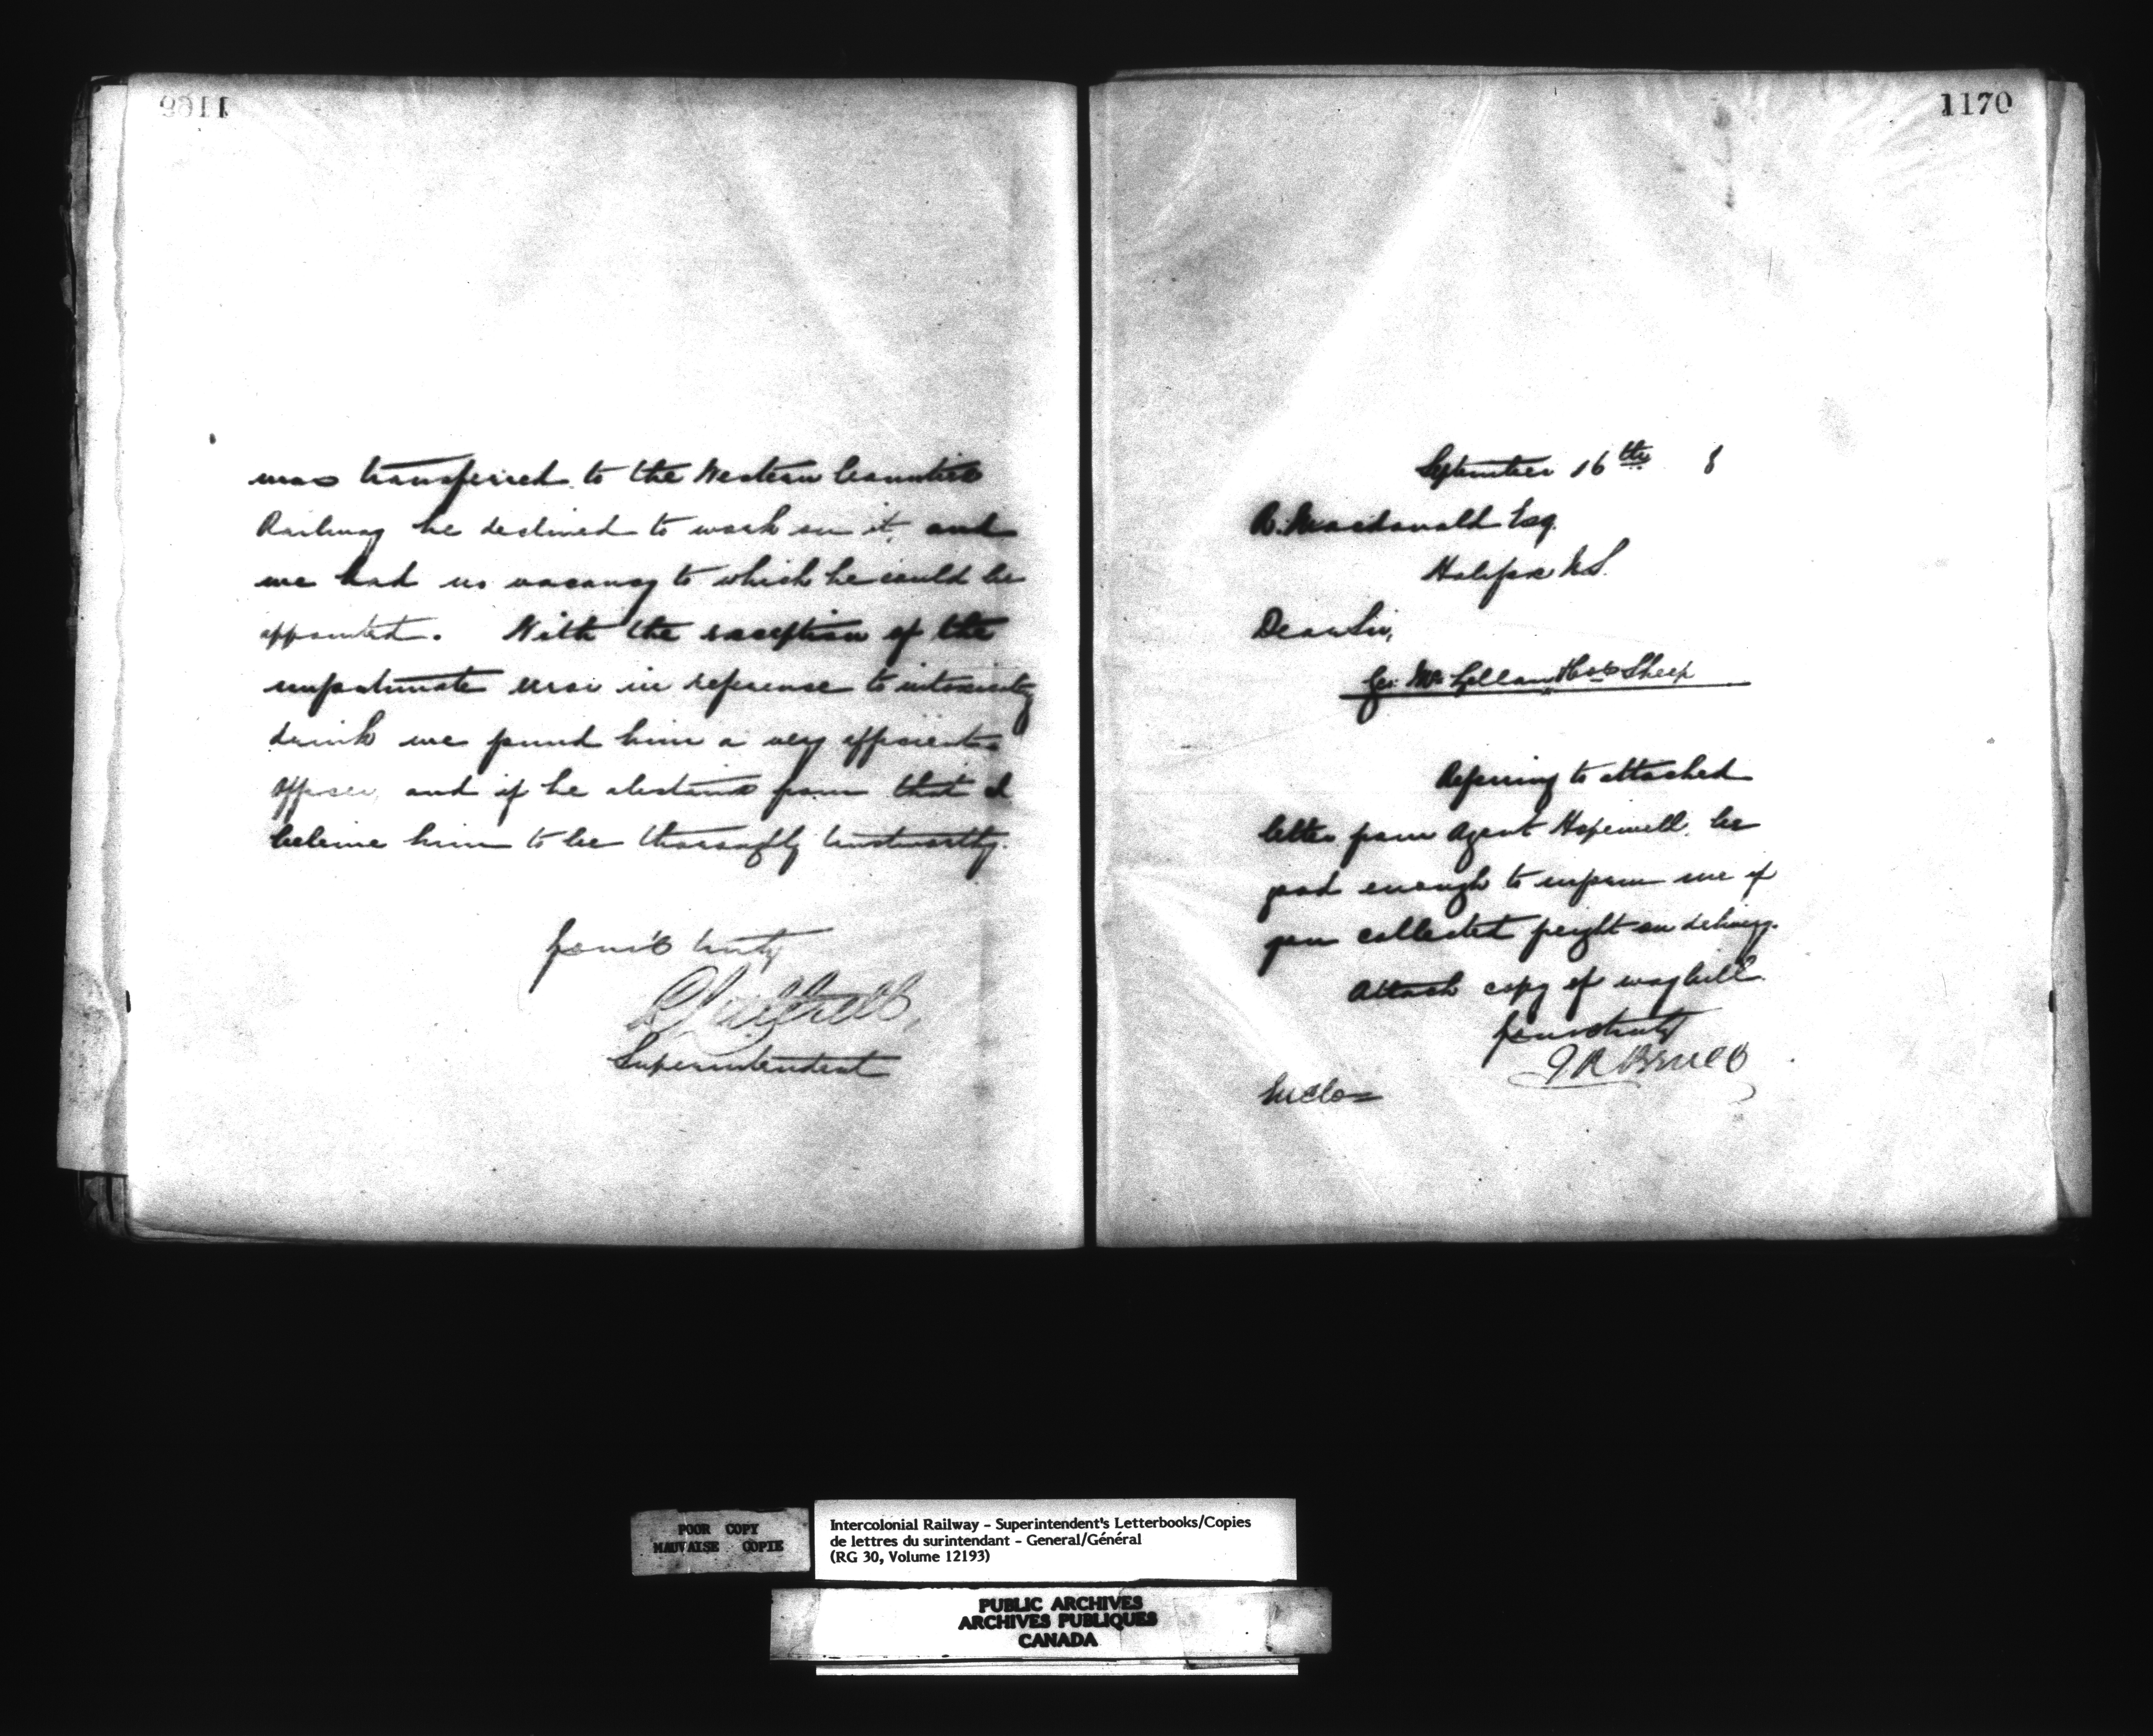 1169
was transferred to the Western Counties
Railway he declined to work on it and
we had no vacancy to which he could be
appointed. With the exception of the
unfortunate error in reference to intoxicating
drink we found him a very efficient
officer and if he abstains from that I
believe him to be thoroughly trustworthy.
Yours truly
Superintendent
1170
September 16th 8
R. Macdonald Esq.
Halifax N.S.
Dear Sir,
Geo. McLellan Sheep
Referring to attached
letter from Agent Hopewell, be
good enough to inform me if
you collected freight on delivery.
Attach copy of waybill.
Yours truly
J R Bruce
Enclo
POOR COPY
MAUVAISE COPIE
Intercolonial Railway - Superintendent's Letterbooks/Copies
de lettres du surintendant - General/Général
(RG 30, Volume 12193)
PUBLIC ARCHIVES
ARCHIVES PUBLIQUES
CANADA